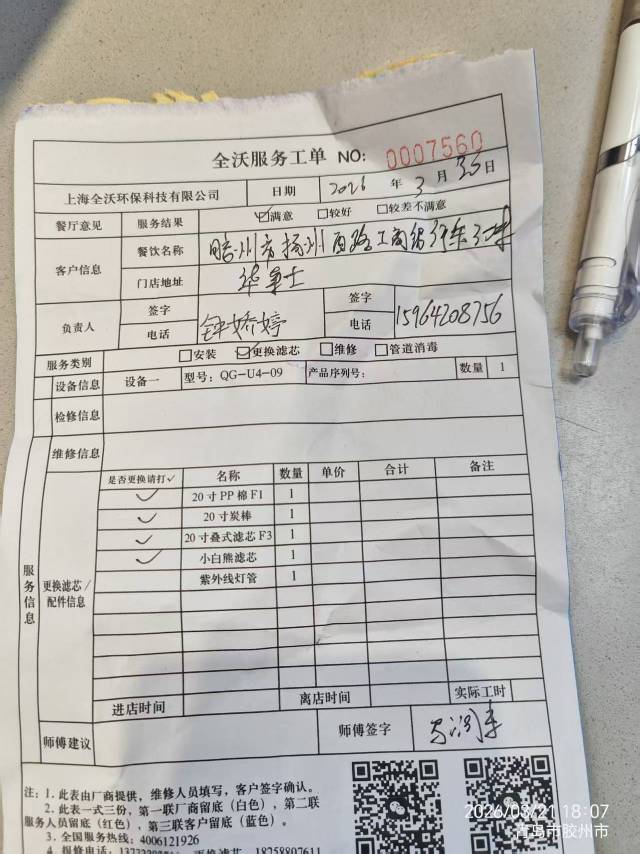 全沃服务工单 NO: 0007560
上海全沃环保科技有限公司 日期 2026 年 3 月 日
餐厅意见 服务结果 ☑满意 □较好 □较差不满意
客户信息 餐饮名称 胶州市扬州西路工商银行东
门店地址 华莱士
负责人 签字 电话 钟娇婷 签字 电话 15964208756
服务类别 □安装 ☑更换滤芯 □维修 □管道消毒
设备信息 设备一 型号: QG-U4-09 产品序列号: 数量 1
检修信息
维修信息
服务信息
更换滤芯/配件信息
是否更换请打✓ 名称 数量 单价 合计 备注
✓ 20寸PP棉F1 1
✓ 20寸炭棒 1
✓ 20寸叠式滤芯F3 1
✓ 小白熊滤芯 1
紫外线灯管 1
进店时间 离店时间 实际工时
师傅建议 师傅签字
注: 1. 此表由厂商提供，维修人员填写，客户签字确认。
2. 此表一式三份，第一联厂商留底（白色），第二联
服务人员留底（红色），第三联客户留底（蓝色）。
3. 全国服务热线: 4006121926
4. 报修电话: 更换滤芯 18758807611
2026/03/21 18:07
青岛市胶州市